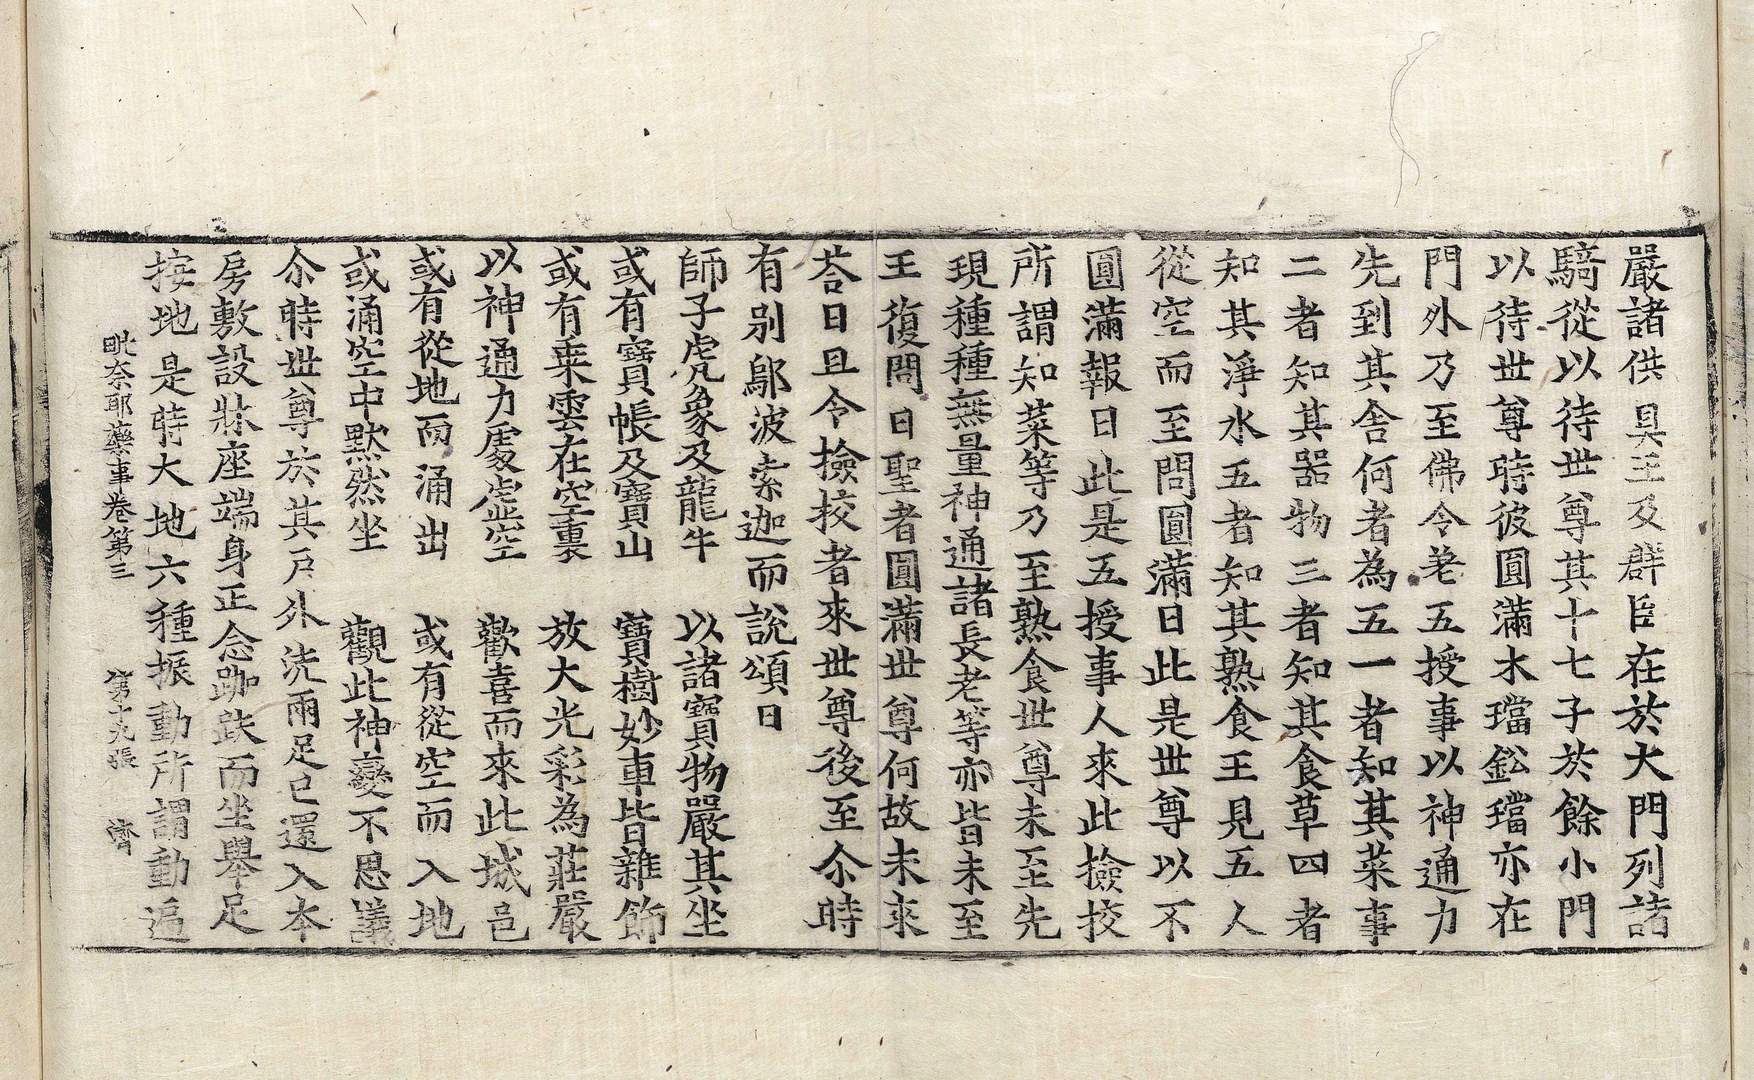 嚴諸供具王及群臣在於大門列諸
騎從以待世尊其十七子於餘小門
以待世尊時彼圓滿木璫鈆璫亦在
門外乃至佛令差五授事以神通力
先到其舍何者為五一者知其菜事
二者知其器物三者知其食草四者
知其淨水五者知其熟食王見五人
從空而至問圓滿曰此是世尊以不
圓滿報曰此是五授事人來此撿挍
所謂知菜等乃至熟食世尊未至先
現種種無量神通諸長老等亦皆未至
王復問曰聖者圓滿世尊何故未來
荅曰且令撿挍者來世尊後至尒時
有別鄔波索迦而說頌曰
師子虎象及龍牛　以諸寶物嚴其坐
或有寶帳及寶山　寶樹妙車皆雜飾
或有乗雲在空裏　放大光彩為莊嚴
以神通力處虛空　歡喜而來此城邑
或有從地而涌出　或有從空而入地
或涌空中默然坐　觀此神變不思議
尒時世尊於其戶外洗兩足已還入本
房敷設牀座端身正念跏趺而坐舉足
按地是時大地六種振動所謂動遍
毗奈耶藥事卷第三　第十九張　濟